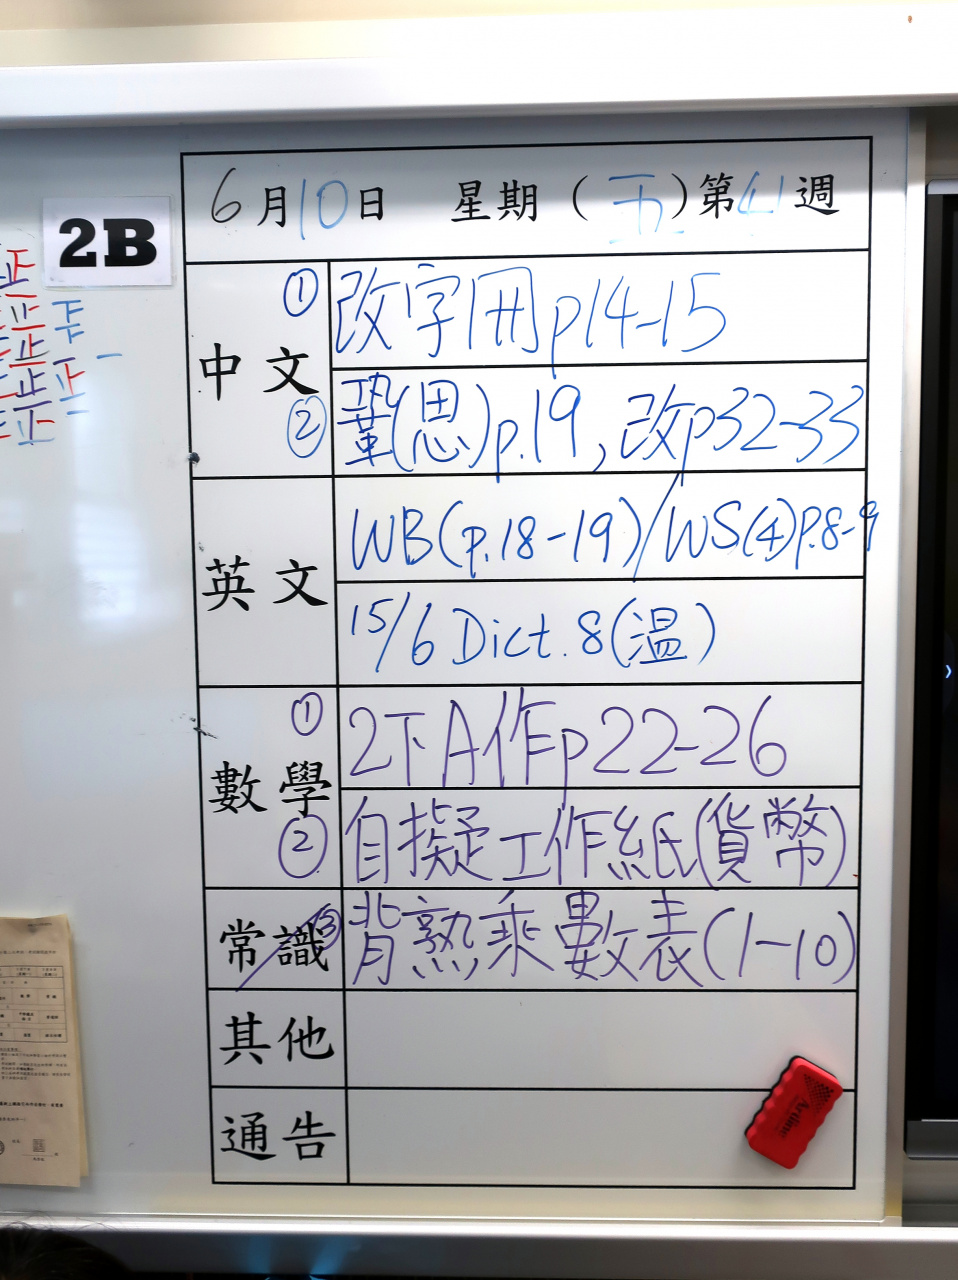 6月10日 星期(五)第41週
2B
中文
① 改字冊p14-15
② 鞏(思)p.19, 改p32-33
英文
WB(p.18-19)/WS(4)P.8-9
15/6 Dict. 8(溫)
數學
① 2下A作p22-26
② 自擬工作紙(貨幣)
常識
③ 背熟乘數表(1-10)
其他
通告
Artline